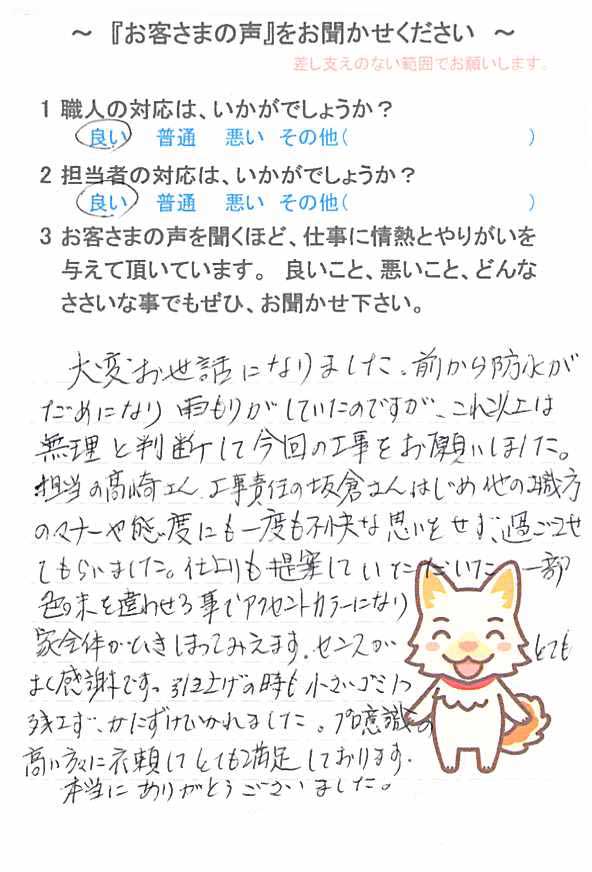 ～ 『お客さまの声』をお聞かせください ～
差し支えのない範囲でお願いします。
1 職人の対応は、いかがでしょうか？
良い 普通 悪い その他( )
2 担当者の対応は、いかがでしょうか？
良い 普通 悪い その他( )
3 お客さまの声を聞くほど、仕事に情熱とやりがいを
与えて頂いています。 良いこと、悪いこと、どんな
ささいな事でもぜひ、お聞かせ下さい。
大変お世話になりました。前から防水が
だめになり雨もりがしていたのですが、これ以上は
無理と判断して今回の工事をお願いしました。
担当の高崎さん、工事責任の坂倉さんはじめ他の職方
のマナーや態度にも一度も不快な思いをせず、過ごさせ
てもらいました。仕上りも提案していただいた一部
色の末を違わせる事でアクセントカラーになり
家全体がひきしまってみえます。センスが とても
よく感謝です。引上げの時も小さいゴミ1つ
残さず、かたずけていかれました。プロ意識の
高い方々に依頼してとても満足しております。
本当にありがとうございました。